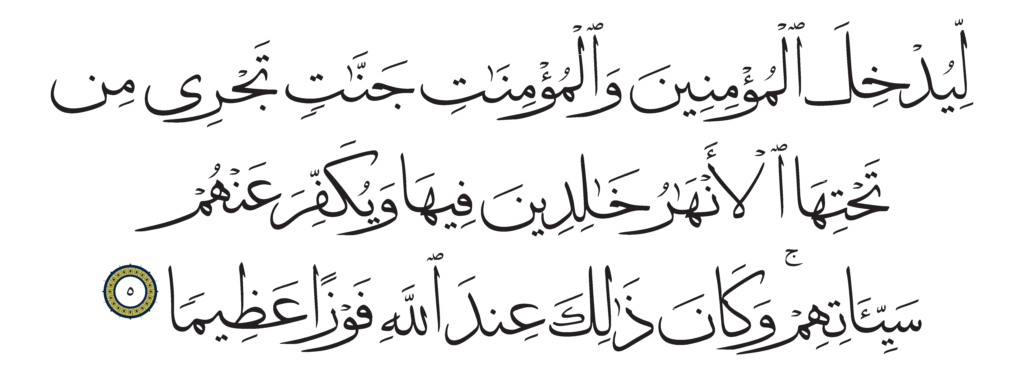 لِّيُدْخِلَ ٱلْمُؤْمِنِينَ وَٱلْمُؤْمِنَٰتِ جَنَّٰتٍ تَجْرِى مِن
تَحْتِهَا ٱلْأَنْهَٰرُ خَٰلِدِينَ فِيهَا وَيُكَفِّرَ عَنْهُمْ
سَيِّـَٔاتِهِمْ ۚ وَكَانَ ذَٰلِكَ عِندَ ٱللَّهِ فَوْزًا عَظِيمًا ٥